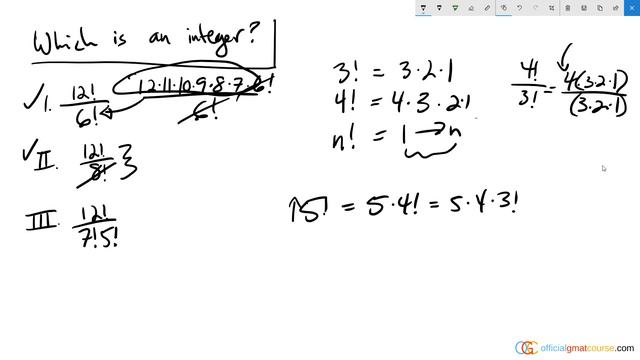 Which is an integer?
✓ I. 12!/6! 12·11·10·9·8·7·6!/6!
✓ II. 12!/8! }
III. 12!/7!5!
3! = 3·2·1
4! = 4·3·2·1
n! = 1 → n
4!/3! = 4(3·2·1)/(3·2·1)
↑5! = 5·4! = 5·4·3!
OG officialgmatcourse.com